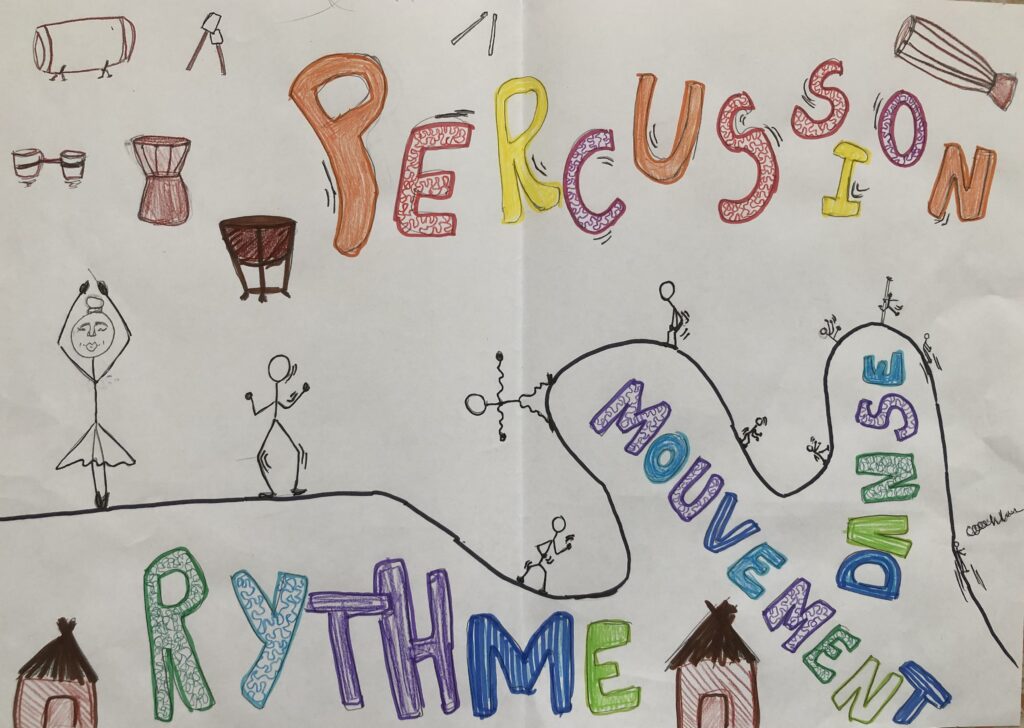 PERCUSSION
MOUVEMENT
DANSE
RYTHME